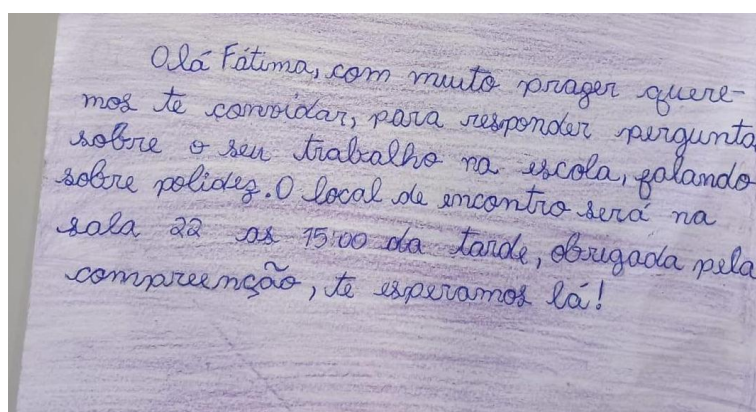 Olá Fátima, com muito prazer quere-
mos te convidar, para responder pergunta
sobre o seu trabalho na escola, falando
sobre polidez. O local de encontro será na
sala 22 as 15:00 da tarde, obrigada pela
compreenção, te esperamos lá!